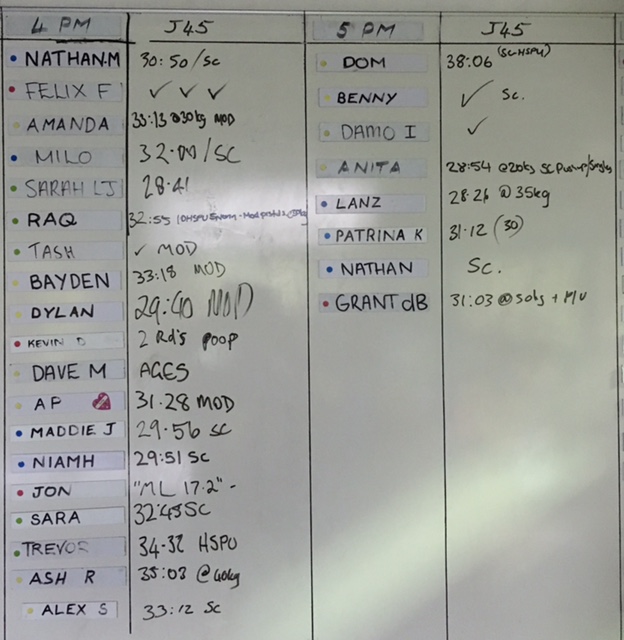 4 PM J45
NATHAN.M 30:50/SC
FELIX F ✓ ✓ ✓
AMANDA 33:13 @30kg MOD
MILO 32:00/SC
SARAH LJ 28.41
RAQ 32:55 10HSPU
TASH ✓ MOD
BAYDEN 33:18 MOD
DYLAN 29:40 MOD
KEVIN D 2 Rd's poop
DAVE M AGES
AP 31.28 MOD
MADDIE J 29:56 SC
NIAMH 29:51 SC
JON "ML 17.2" -
SARA 32:45 SC
TREVOR 34-32 HSPU
ASH R 35:03 @40kg
ALEX S 33:12 SC
5 PM J45
DOM 38:06 (SC-HSPU)
BENNY ✓ SC.
DAMO I ✓
ANITA 28:54 @20kg SC
LANZ 28:26 @ 35kg
PATRINA K 31.12 (30)
NATHAN SC.
GRANT dB 31:03 @50kg + M/U